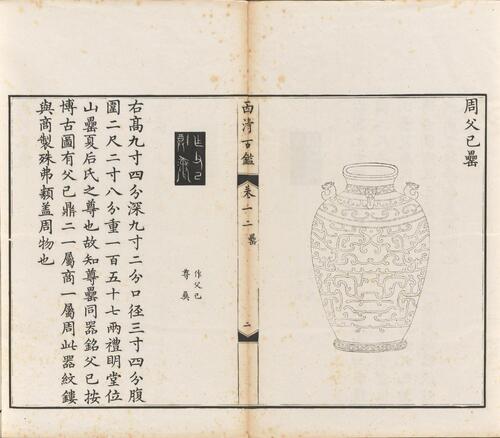 周父己罍
西清古鑑 卷十二 罍 二
作父己
尊彝
右高九寸四分深九寸二分口徑三寸四分腹
圍二尺二寸八分重一百五十七兩禮明堂位
山罍夏后氏之尊也故知尊罍同器銘父己按
博古圖有父己鼎二一屬商一屬周此器紋鏤
與商製殊弗類蓋周物也